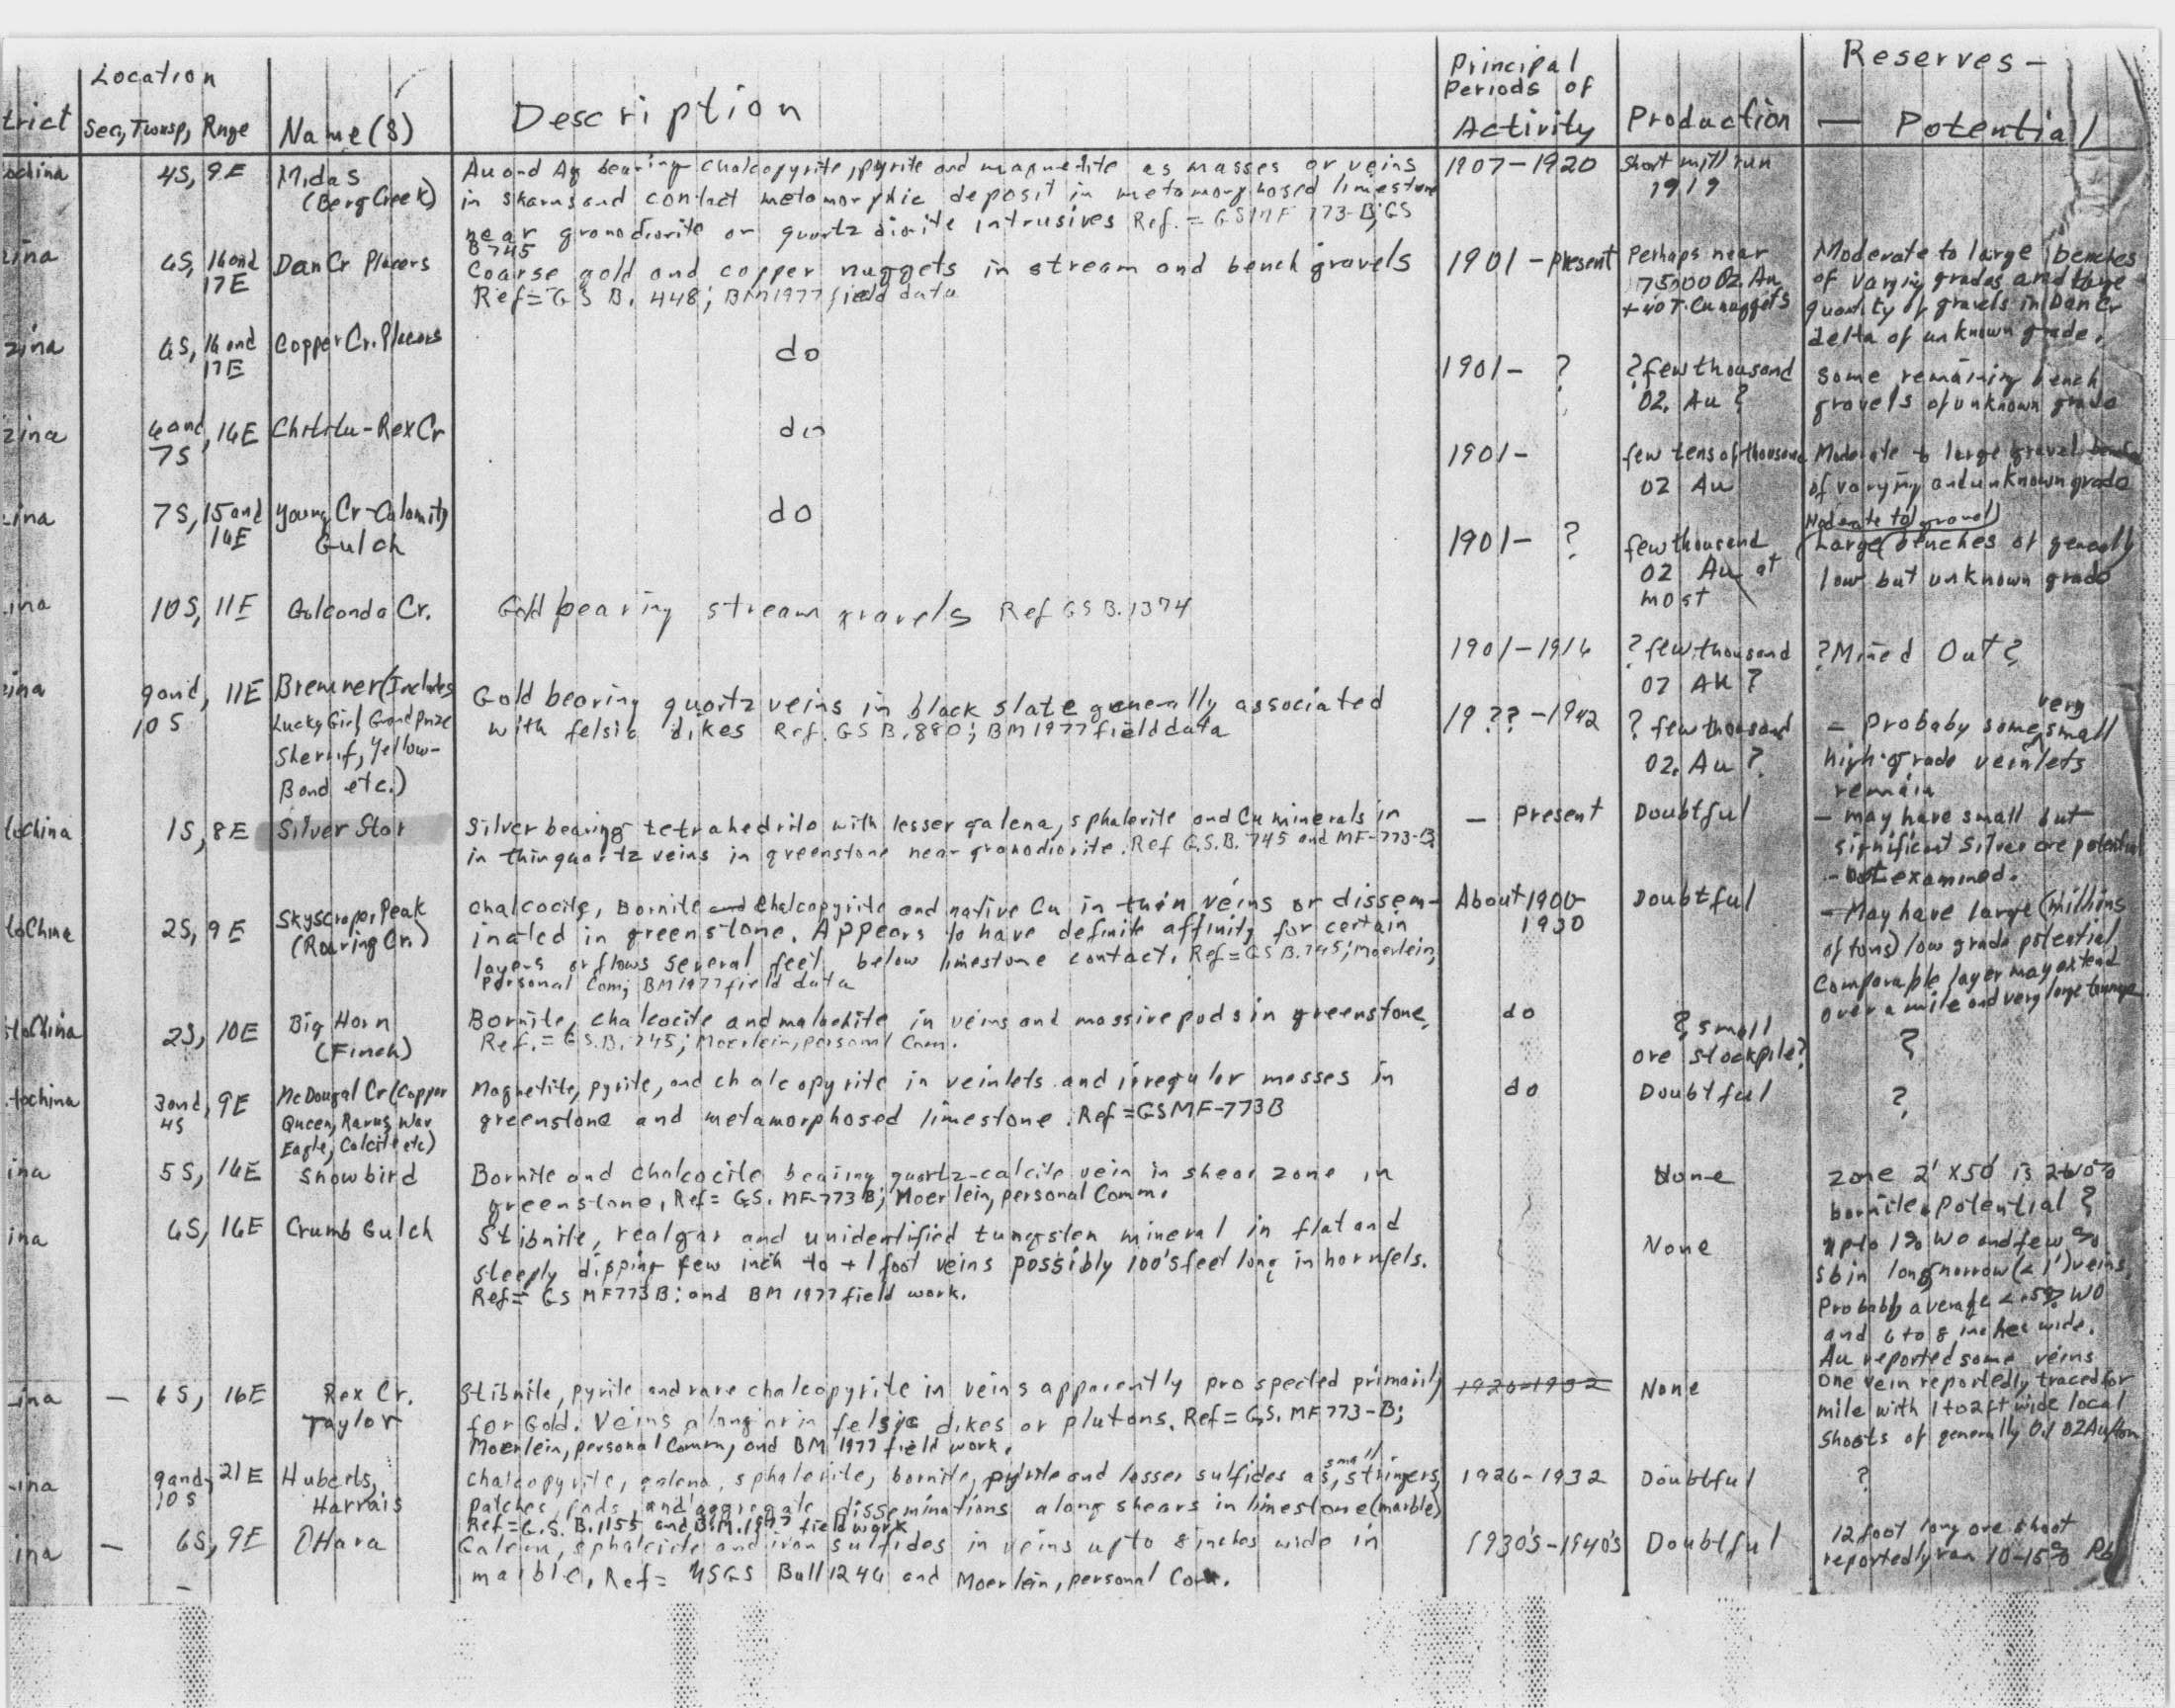 Location
Principal
Periods of
Activity
Reserves —
trict Sec, Twnsp, Rnge Name(s) Description Production — Potential
4S, 9E Midas
(Berg Creek)
Au and Ag bearing chalcopyrite, pyrite and magnetite as masses or veins
in skarns and contact metamorphic deposit in metamorphosed limestone
near granodiorite or quartz diorite intrusives Ref. = GSMF 773-B; GS
B 745
1907-1920 Short mill run
1919
zina 6S, 16 and
17E
Dan Cr Placers
Coarse gold and copper nuggets in stream and bench gravels
Ref = G S B. 448; BM 1977 field data
1901 - present Perhaps near
75000 Oz Au
+ 40 T. Cu nuggets
Moderate to large benches
of varying grades and large
quantity of gravels in Dan Cr
delta of unknown grade.
zina 6S, 16 and
17E
Copper Cr. Placers do
1901 - ? ? few thousand
oz. Au ?
some remaining bench
gravels of unknown grade
zina 6 and
7S, 16E Chititu - Rex Cr do
1901- few tens of thousand
oz Au
Moderate to large gravel
of varying and unknown grade
zina 7S, 15 and
16E
Young Cr - Calamity
Gulch
do
1901- ? few thousand
oz Au at
most
Moderate to gravel
Large benches of generally
low but unknown grade
ina 10S, 11E Golconda Cr. Gold bearing stream gravels Ref GS B. 1374
1901-1916 ? few thousand
oz Au ?
? Mined Out ?
zina 9 and, 11E
10S
Bremner (Includes
Lucky Girl, Grand Prize
Sherrif, Yellow-
Band etc.)
Gold bearing quartz veins in black slate generally associated
with felsic dikes Ref. GS B. 880; BM 1977 field data
19?? - 1942 ? few thousand
oz. Au ?
very
- Probaby some small
high-grade veinlets
remain
tochina 1S, 8E Silver Star
Silver bearing tetrahedrite with lesser galena, sphalerite and Cu minerals in
in thin quartz veins in greenstone near granodiorite. Ref G.S.B. 745 and MF-773-B
- present Doubtful
- may have small but
significant silver ore potential
- not examined.
toChina 2S, 9E Skyscraper Peak
(Roaring Cr.)
Chalcocite, Bornite and Chalcopyrite and native Cu in thin veins or dissem-
inated in greenstone. Appears to have definite affinity for certain
layers or flows several feet below limestone contact. Ref = GS B. 745; Moerlein,
Personal Com; BM 1977 field data
About 1900-
1930
Doubtful
- May have large (millions
of tons) low grade potential
Comparable layer may extend
over a mile and very large tonnage
toChina 2S, 10E Big Horn
(Finch)
Bornite, chalcocite and malachite in veins and massive pods in greenstone,
Ref. = G.S.B. 745; Moerlein, personal Com.
do ? small
ore stockpile?
?
tochina 3 and, 9E
4S
McDougal Cr (Copper
Queen, Rarus, War
Eagle, Calcite etc)
Magnetite, pyrite, and chalcopyrite in veinlets and irregular masses in
greenstone and metamorphosed limestone. Ref = GSMF-773B
do Doubtful ?
ina 5S, 16E Snowbird
Bornite and chalcocite bearing quartz-calcite vein in shear zone in
greenstone, Ref = GS. MF-773B; Moerlein, personal Comm.
None
zone 2' x 50' is
bornite. potential ?
ina 6S, 16E Crumb Gulch
Stibnite, realgar and unidentified tungsten mineral in flat and
steeply dipping few inch to +1 foot veins possibly 100's feet long in hornfels.
Ref = GS MF773B; and BM 1977 field work.
None
upto 1% WO and few %
Sb in long narrow (<1') veins.
Probably average <.5% WO
and 6 to 8 inches wide.
Au reported some veins
ina — 6S, 16E Rex Cr.
Taylor
Stibnite, pyrite and rare chalcopyrite in veins apparently prospected primarily
for Gold. Veins along or in felsic dikes or plutons. Ref = G.S. MF 773-B;
Moerlein, personal Comm, and BM 1977 field work.
1926-1932 None
One vein reportedly traced for
mile with 1 to 2 ft wide local
shoots of generally 0.1 oz Au/ton
ina 9 and, 21E
10S
Huberts,
Harrais
small
Chalcopyrite, galena, sphalerite, bornite, pyrite and lesser sulfides as, stringers,
patches, pods, and aggregate disseminations along shears in limestone (marble)
Ref = G.S. B. 1155 and B.M. 1977 field work
1926-1932 Doubtful ?
ina — 6S, 9E OHara
Galena, sphalerite and iron sulfides in veins upto 8 inches wide in
marble, Ref = USGS Bull 1246 and Moerlein, personal Com.
1930's-1940's Doubtful
12 foot long ore shoot
reportedly ran 10-15% Pb